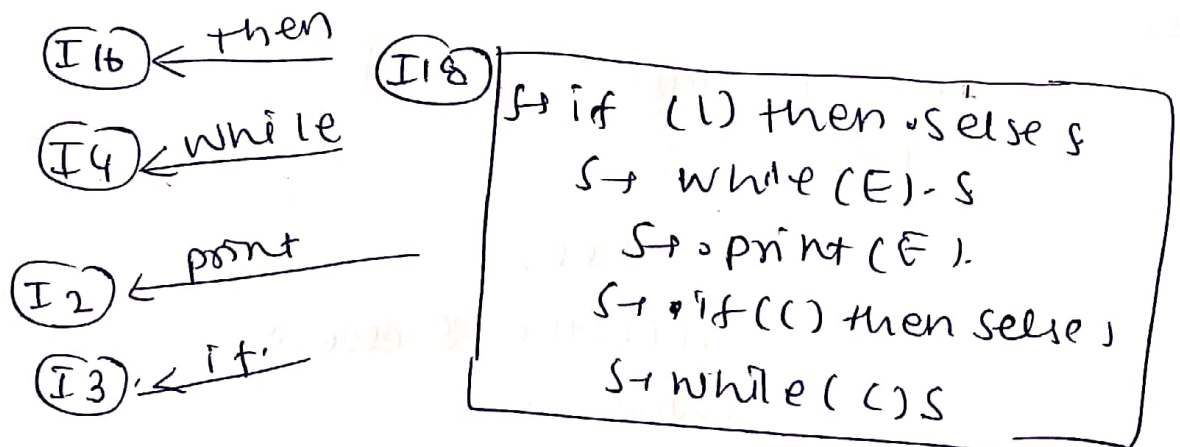 I16 ← then
I4 ← while
I2 ← print
I3 ← if.
I18
S→ if (C) then .S else S
S→ while (E). S
S→ . print (E).
S→ .if (C) then S else S
S→ while (C) S